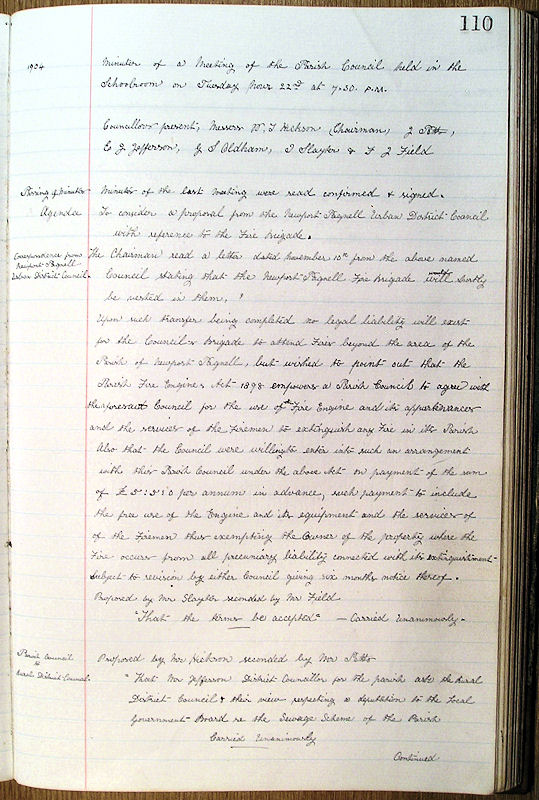 110
1904
Minutes of a Meeting of the Parish Council held in the
Schoolroom on Tuesday Novr 22nd at 7.30. p.m.
Councillors present, Messrs W. J Hickson (Chairman, J Pitts,
E J Jefferson, J S Oldham, J Slayter & F J Field
Passing of Minutes
Minutes of the last Meeting were read confirmed & signed.
Agenda
To consider a proposal from the Newport Pagnell Urban District Council
with reference to the Fire Brigade.
Correspondence from
Newport Pagnell
Urban District Council.
The Chairman read a letter dated November 10th from the above named
Council stating that the Newport Pagnell Fire Brigade would shortly
be vested in them,
Upon such transfer being completed no legal liability will exist
for the Council's Brigade to attend Fires beyond the area of the
Parish of Newport Pagnell, but wished to point out that the
Parish Fire Engines Act 1898 empowers a Parish Council to agree with
the aforesaid Council for the use of the Fire Engine and its appurtenances
and the services of the Firemen to extinguish any Fire in its Parish
Also that the Council were willing to enter into such an arrangement
with this Parish Council under the above Act on payment of the sum
of £5:5:0 per annum in advance, such payment to include
the free use of the Engine and its equipment and the services of
of the Firemen thus exempting the Owner of the property where the
Fire occurs from all precuniary liability connected with its extinguishment
subject to revision by either Council giving six months notice thereof.
Proposed by Mr Slayter seconded by Mr Field
"That the terms be accepted" — Carried Unanimously.
Parish Council
to
Rural District Council
Proposed by Mr Hickson seconded by Mr Pitts
"That Mr Jefferson District Councillor for the parish ask the Rural
District Council & their view respecting a deputation to the Local
Government Board re the Sewage Scheme of the Parish
Carried Unanimously
Continued